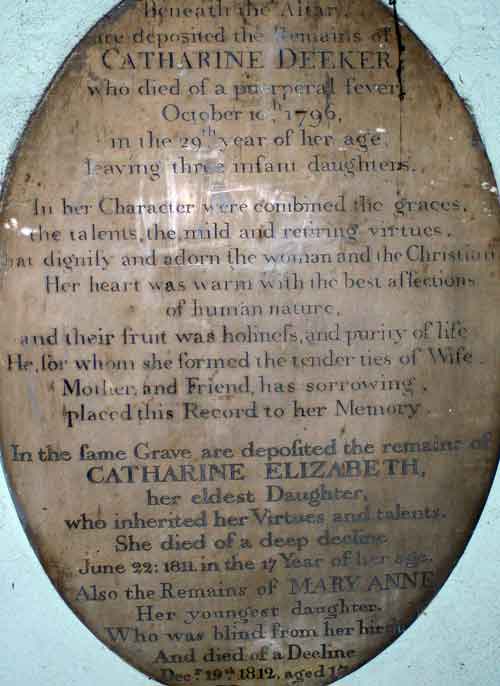 beneath the Altar,
are deposited the Remains of
CATHARINE DEEKER,
who died of a puerperal fever,
October 10th 1796,
in the 29th year of her age,
leaving three infant daughters.
In her Character were combined the graces,
the talents, the mild and retiring virtues,
that dignify and adorn the woman and the Christian
Her heart was warm with the best affections
of human nature,
and their fruit was holineſs, and purity of life
He, for whom she formed the tender ties of Wife
Mother, and Friend, has sorrowing,
placed this Record to her Memory.
In the ſame Grave are depoſited the remains of
CATHARINE ELIZABETH,
her eldest Daughter,
who inherited her Virtues and talents.
She died of a deep decline
June 22: 1811. in the 17 Year of her age.
Also the Remains of MARY ANNE
Her youngest daughter.
Who was blind from her birth
And died of a Decline
Decr. 19th 1812, aged